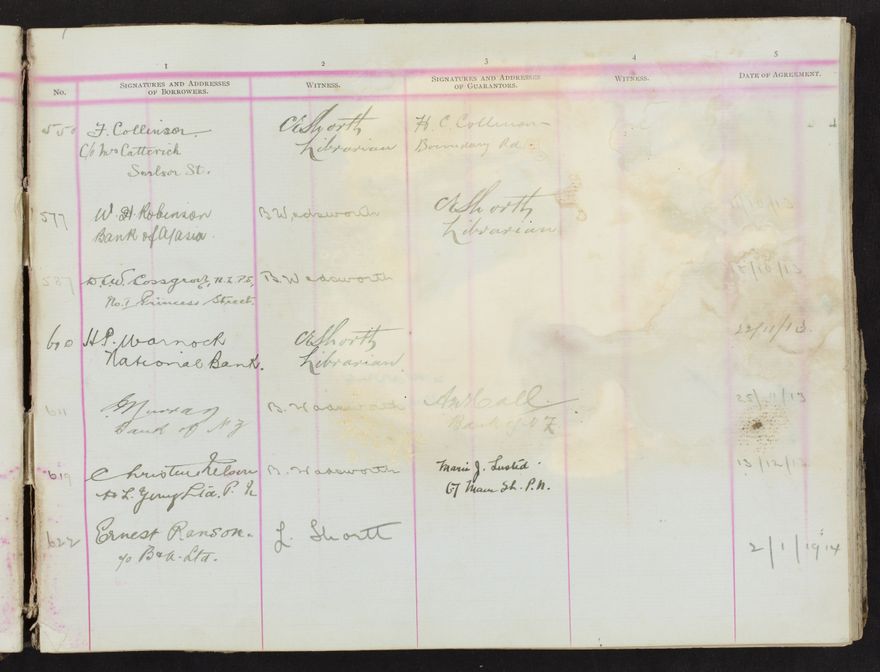 1 2 3 4 5
No. SIGNATURES AND ADDRESSES OF BORROWERS. WITNESS. SIGNATURES AND ADDRESSES OF GUARANTORS. WITNESS. DATE OF AGREEMENT.
550 F. Collinson Librarian H. C. Collinson
C/o Mrs Catterick Boundary Rd
St.
577 W. H. Robinson B Wadsworth
Bank of A/asia Librarian
587 B. Wadsworth
No. 1 Princess Street.
600 H. P. Warnock 22/11/13
National Bank. Librarian
611 Murray B. Wadsworth 28/11/13
Bank of NZ Bank of NZ
619 Christen Nelson B. Wadsworth Marie J. Lusted 13/12/13
Ltd. P. N 67 Main St. P.N.
622 Ernest Ranson L. Shortt 2/1/1914
c/o Ltd.